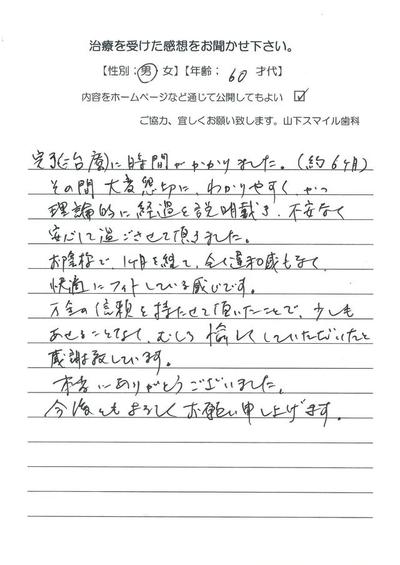 治療を受けた感想をお聞かせ下さい。
【性別：男 女】【年齢： 60 才代】
内容をホームページなど通じて公開してもよい ☑
ご協力、宜しくお願い致します。山下スマイル歯科
完了(治療)に時間がかかりました。(約6ヶ月)
その間 大変懇切に、わかりやすく、かつ
理論的に経過を説明戴き、不安なく
安心して過ごさせて頂きました。
お陰様で、1ヶ月を経て、全く違和感もなく、
快適にフィットしている感じです。
万全の信頼を持たせて頂いたことで、少しも
あせることなく、むしろ愉しく していただいたと
感謝致しています。
本当にありがとうございました。
今後ともよろしくお願い申し上げます。